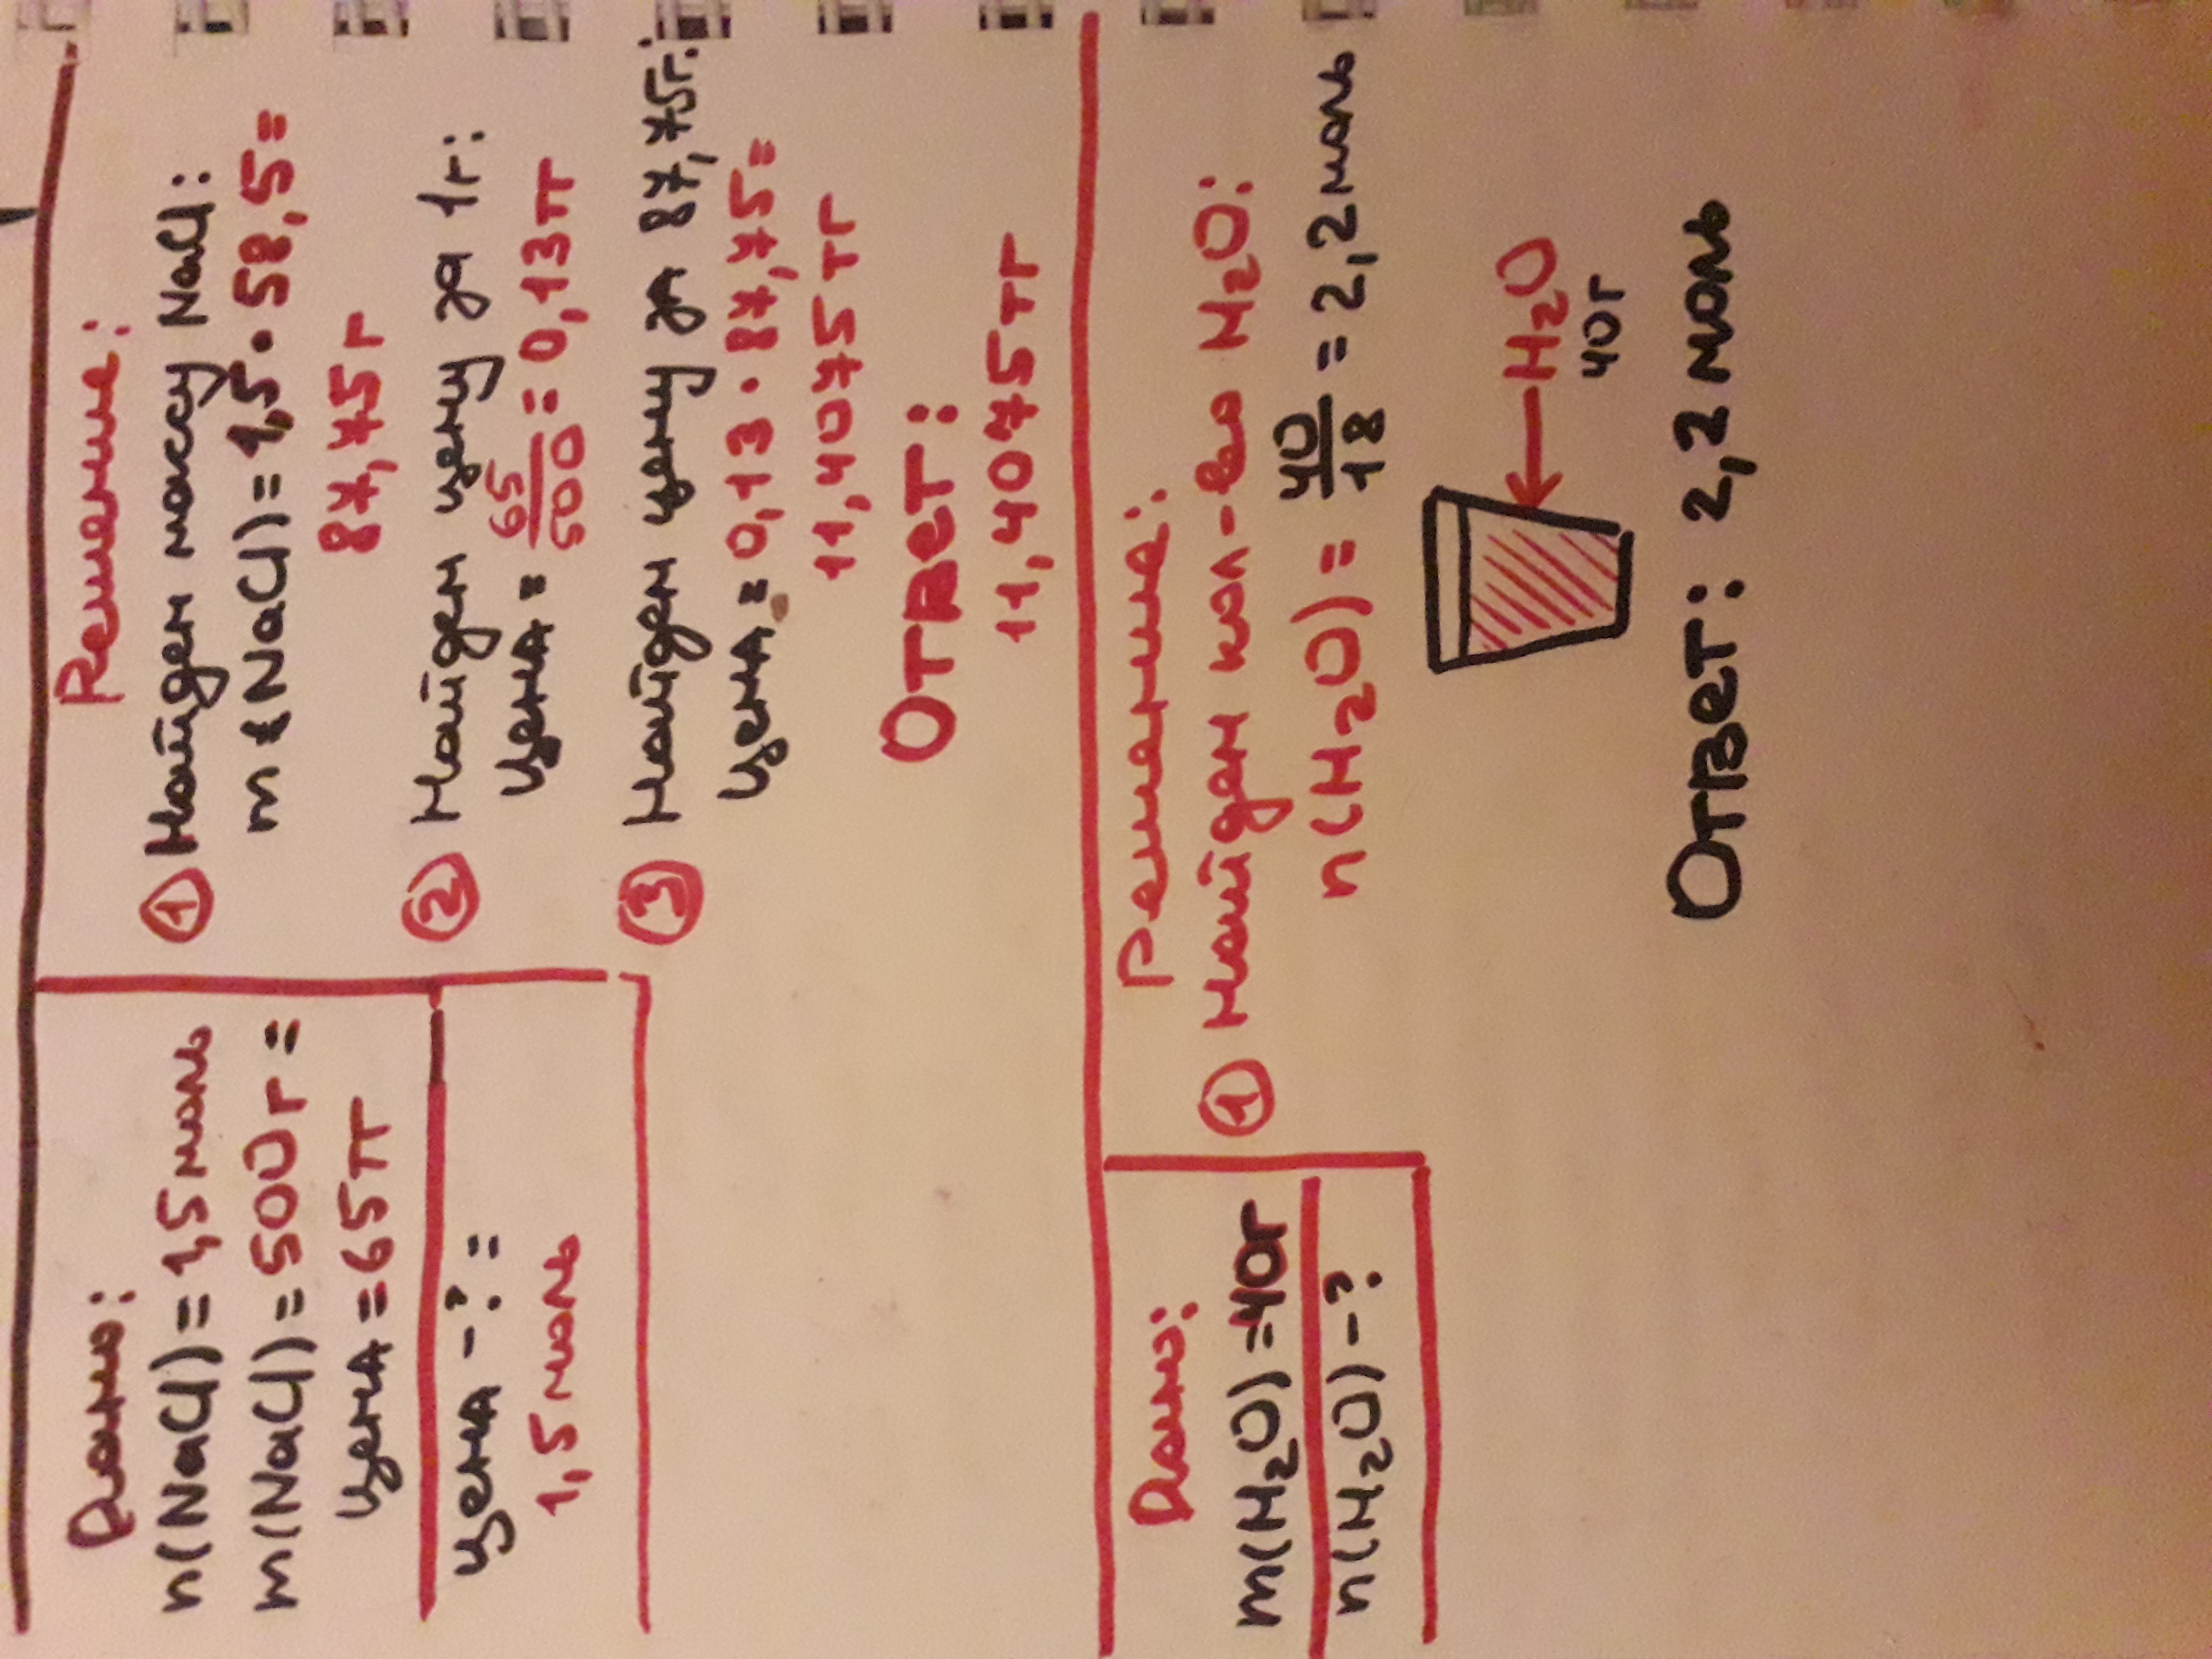 Дано:
n(NaCl) = 1,5 моль
m(NaCl) = 500г =
цена = 65тг
цена - ? =
1,5 моль
Решение:
① Найдем массу NaCl:
m (NaCl) = 1,5 · 58,5 =
87,75г
② Найдем цену за 1г:
цена = 65/500 = 0,13тг
③ Найдем цену за 87,75г:
цена = 0,13 · 87,75 =
11,4075тг
Ответ:
11,4075тг
Дано:
m(H₂O) = 40г
n(H₂O) - ?
Решение:
① Найдем кол-во H₂O:
n(H₂O) = 40/18 = 2,2 моль
H₂O
40г
Ответ: 2,2 моль